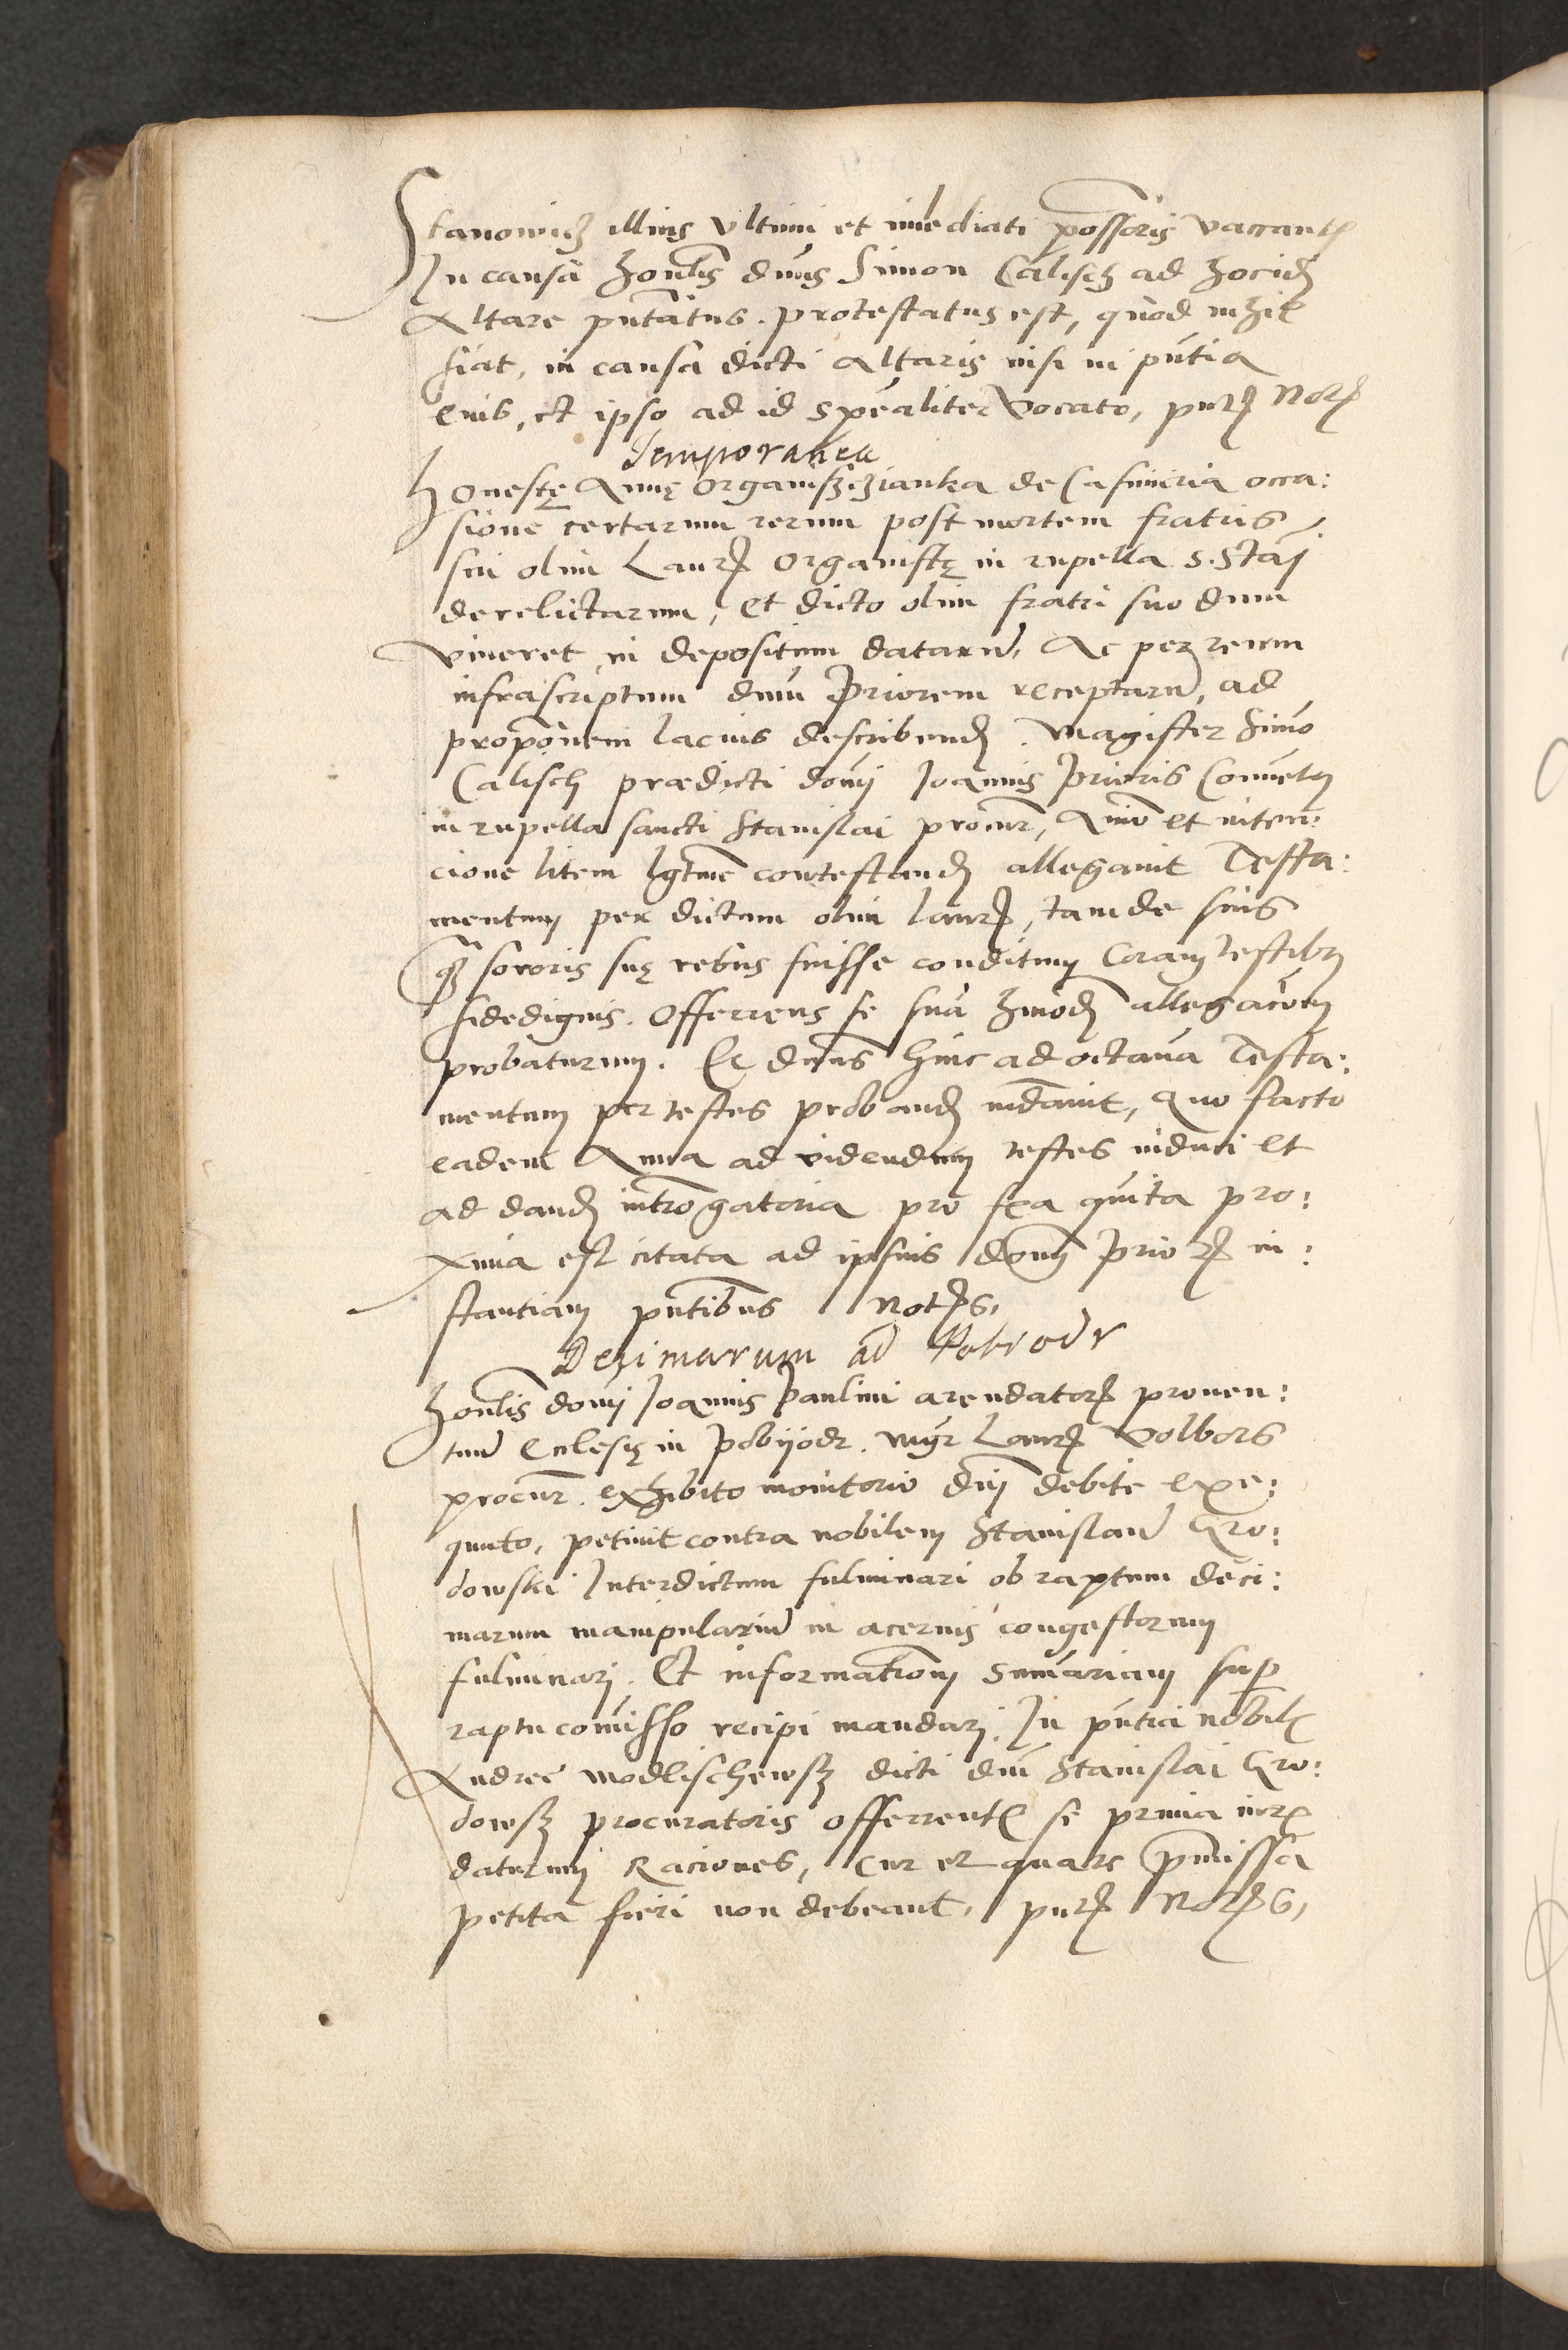 Stanowicz illius ultimi et imediati possoris vaccantȩ
In causa honblis dnus Simon Calisch ad hocid
Altare pntatus. protestatus est, quod nihil
fiat, in causa dicti altaris nisi in pntia
eius, et ipso ad id spealiter vocato, pntƶ Notƶ
Temporanea
Honestę Annę Organisczianka de Casimiria occa:
sione certarum rerum post mortem fratris
sui olim Laurƶ Organistę in rupella S. Staj
derelictarum, et dicto olim fratri suo dum
viueret in depositum dataru, ac per reum
infrascriptum dnm Priorem receptaru, ad
proponem lacius describend. Magister Simo
Calisch praedicti domj Joannis Prioris Conuetꝯ
in rupella sancti Stanislai procur, animo et inten:
cione litem lgtme contestandj allegauit Testa:
mentum per dictum olim laurƶ, tam de suis
qƶ sororis suę rebus fuisse conditum Coram testibꝯ
fidedignis. Offerrens se sua hmodj allegacom
probaturum. Et dnus hinc ad octaua Testa:
mentum per testes probandj mdauit, quo facto
eadem Anna ad videndum testes induci et
ad dandj introgatoria pro fꝑa quita pro:
xima est citata ad ipsius domj Priorƶ in:
stantiam pntibus Notƶs,
Decimarum ad Pobiodr
Honblis domj Joannis Paulini arendatorƶ prouen:
tuu Ecclesię in Pobyodr. mgr Laurƶ Volbors
procur. exhibito monitorio dnj debite exe:
quuto, petiuit contra nobilem Stanislau Gro:
dowski Interdictum fulminari ob raptum deci:
marum manipulariu in aceruis congestorum
fulminarj. Et informationem Sumariam sup
raptu comisso recipi mandarj. In pntia nobilȩ
Andreę Modlischewsky dicti dnj Stanislai Gro:
dowsky procuratoris offerrentȩ se primia iurȩ
daturum Raciones, cur et quare pmissa
petita fieri non debeant, pntƶ Notƶs,